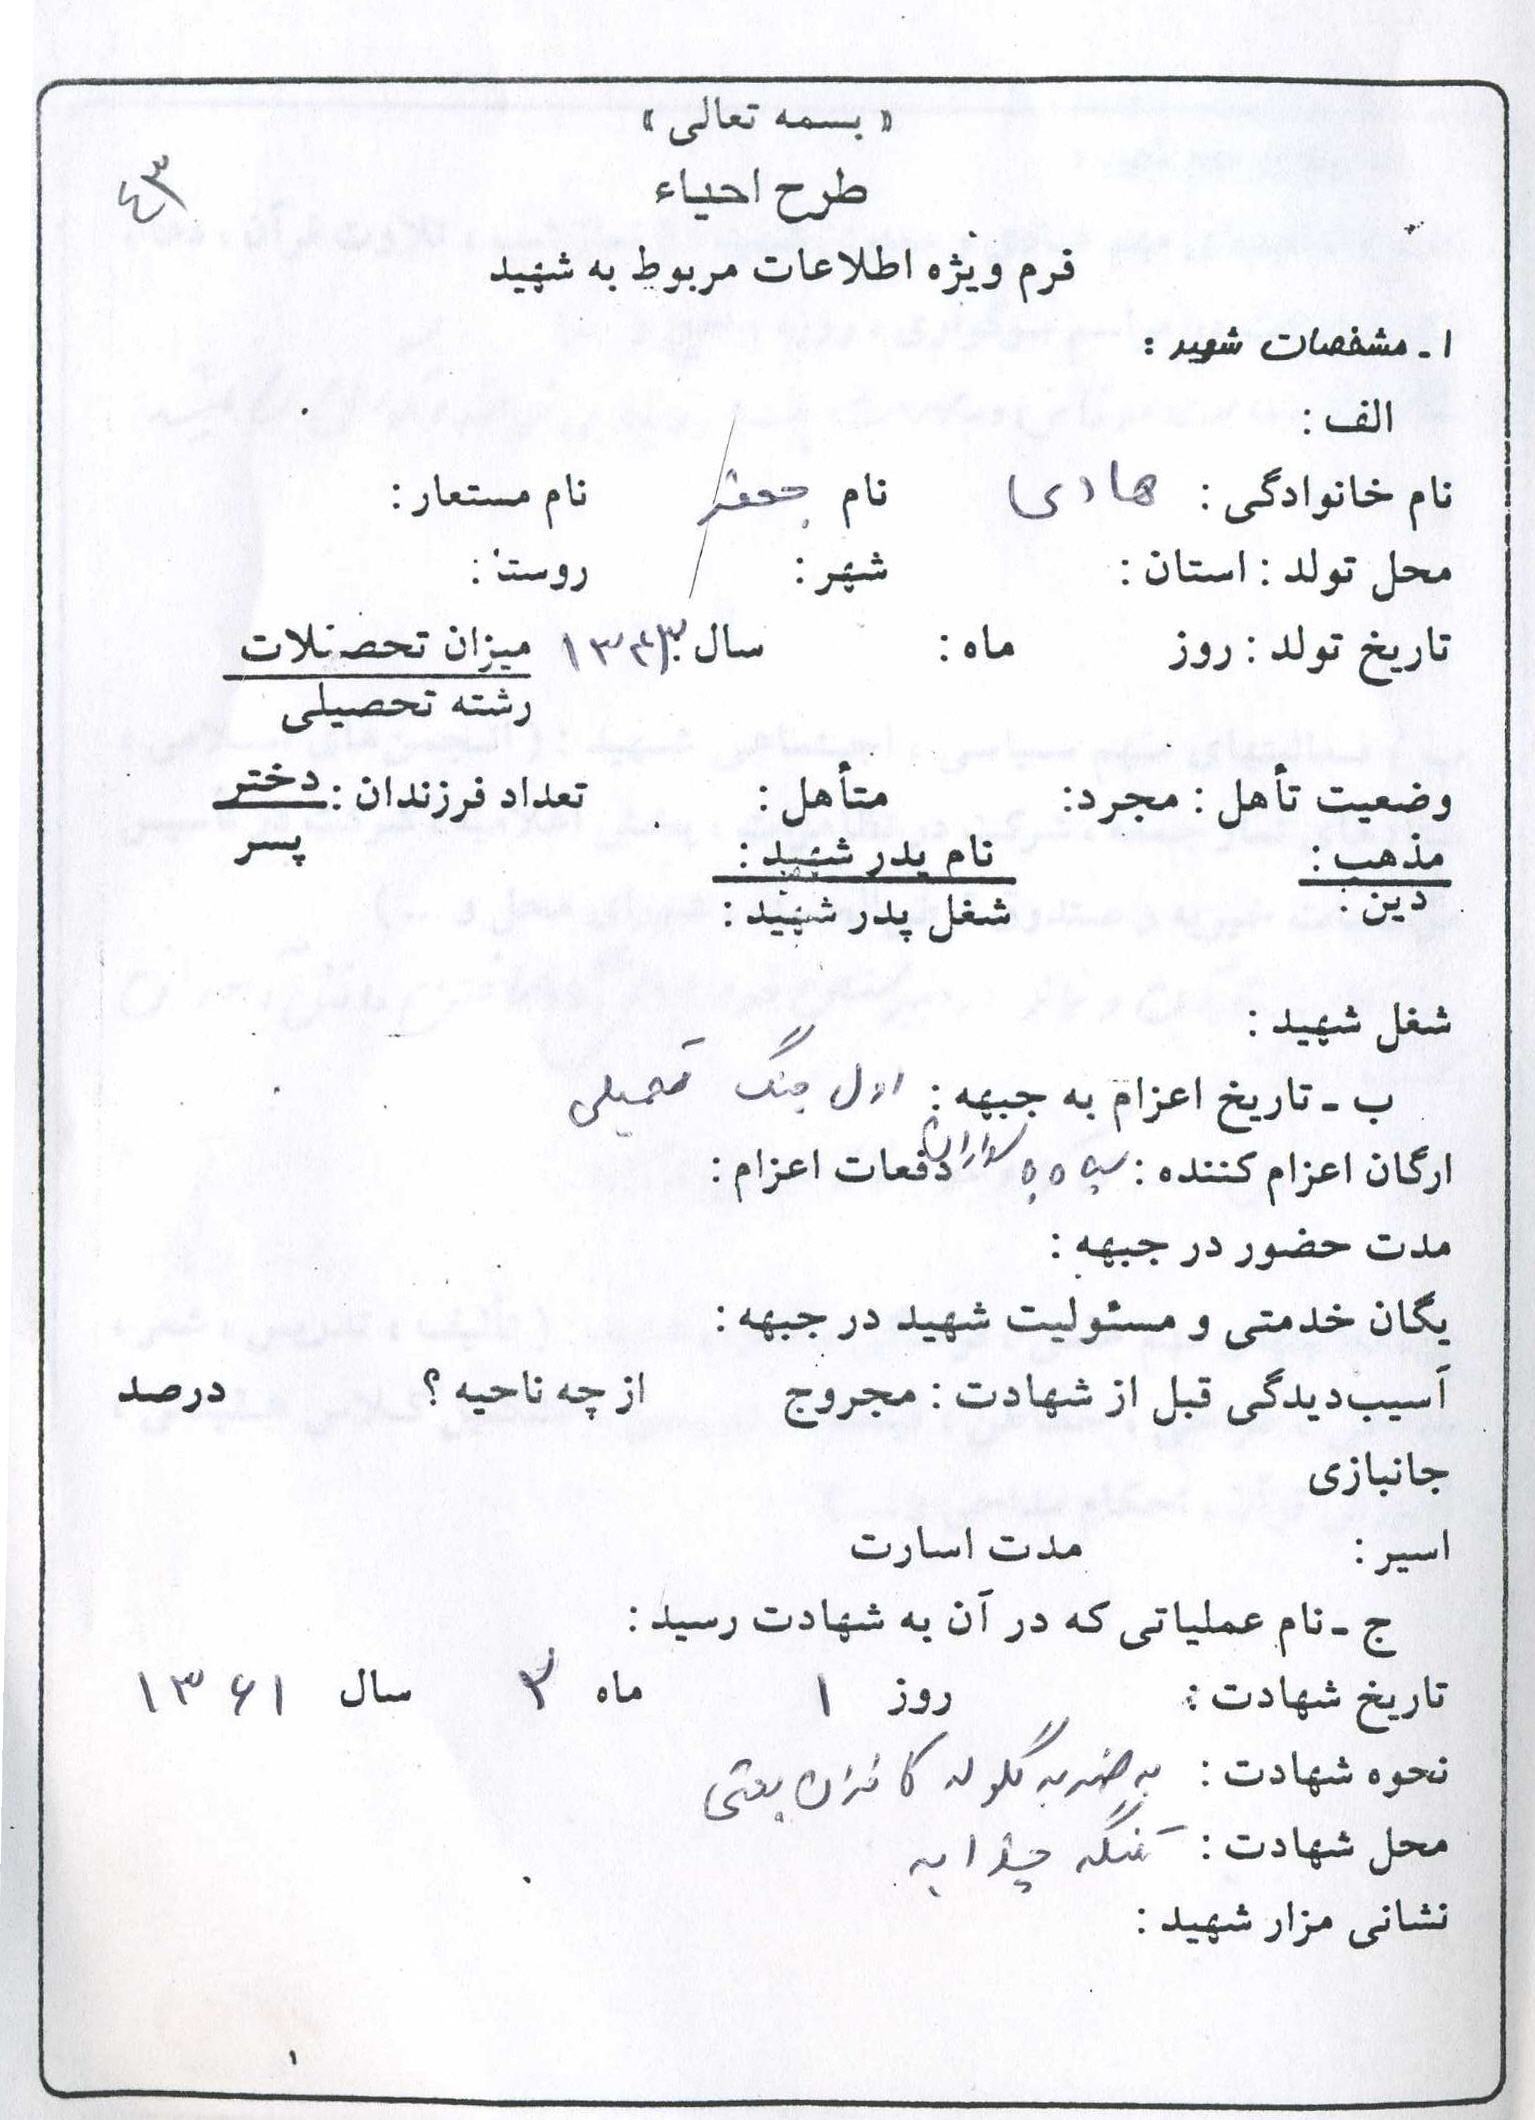 « بسمه تعالی »
طرح احیاء
فرم ویژه اطلاعات مربوط به شهید
۱ـ مشخصات شهید :
الف :
نام خانوادگی : هادی نام جعفر نام مستعار :
محل تولد : استان : شهر : روستا :
تاریخ تولد : روز ماه : سال : میزان تحصیلات
رشته تحصیلی
وضعیت تأهل : مجرد: متأهل : تعداد فرزندان : دختر
پسر
مذهب : نام پدر شهید :
دین : شغل پدر شهید :
شغل شهید :
ب ـ تاریخ اعزام به جبهه : اول جنگ تحمیلی
ارگان اعزام کننده : سپاه پاسداران دفعات اعزام :
مدت حضور در جبهه :
یگان خدمتی و مسئولیت شهید در جبهه :
آسیب‌دیدگی قبل از شهادت : مجروح از چه ناحیه ؟ درصد
جانبازی
اسیر : مدت اسارت
ج ـ نام عملیاتی که در آن به شهادت رسید :
تاریخ شهادت : روز ۱ ماه ۳ سال ۱۳۶۱
نحوه شهادت : به ضربه گلوله کافران بعثی
محل شهادت : تنگه چذابه
نشانی مزار شهید :
۱